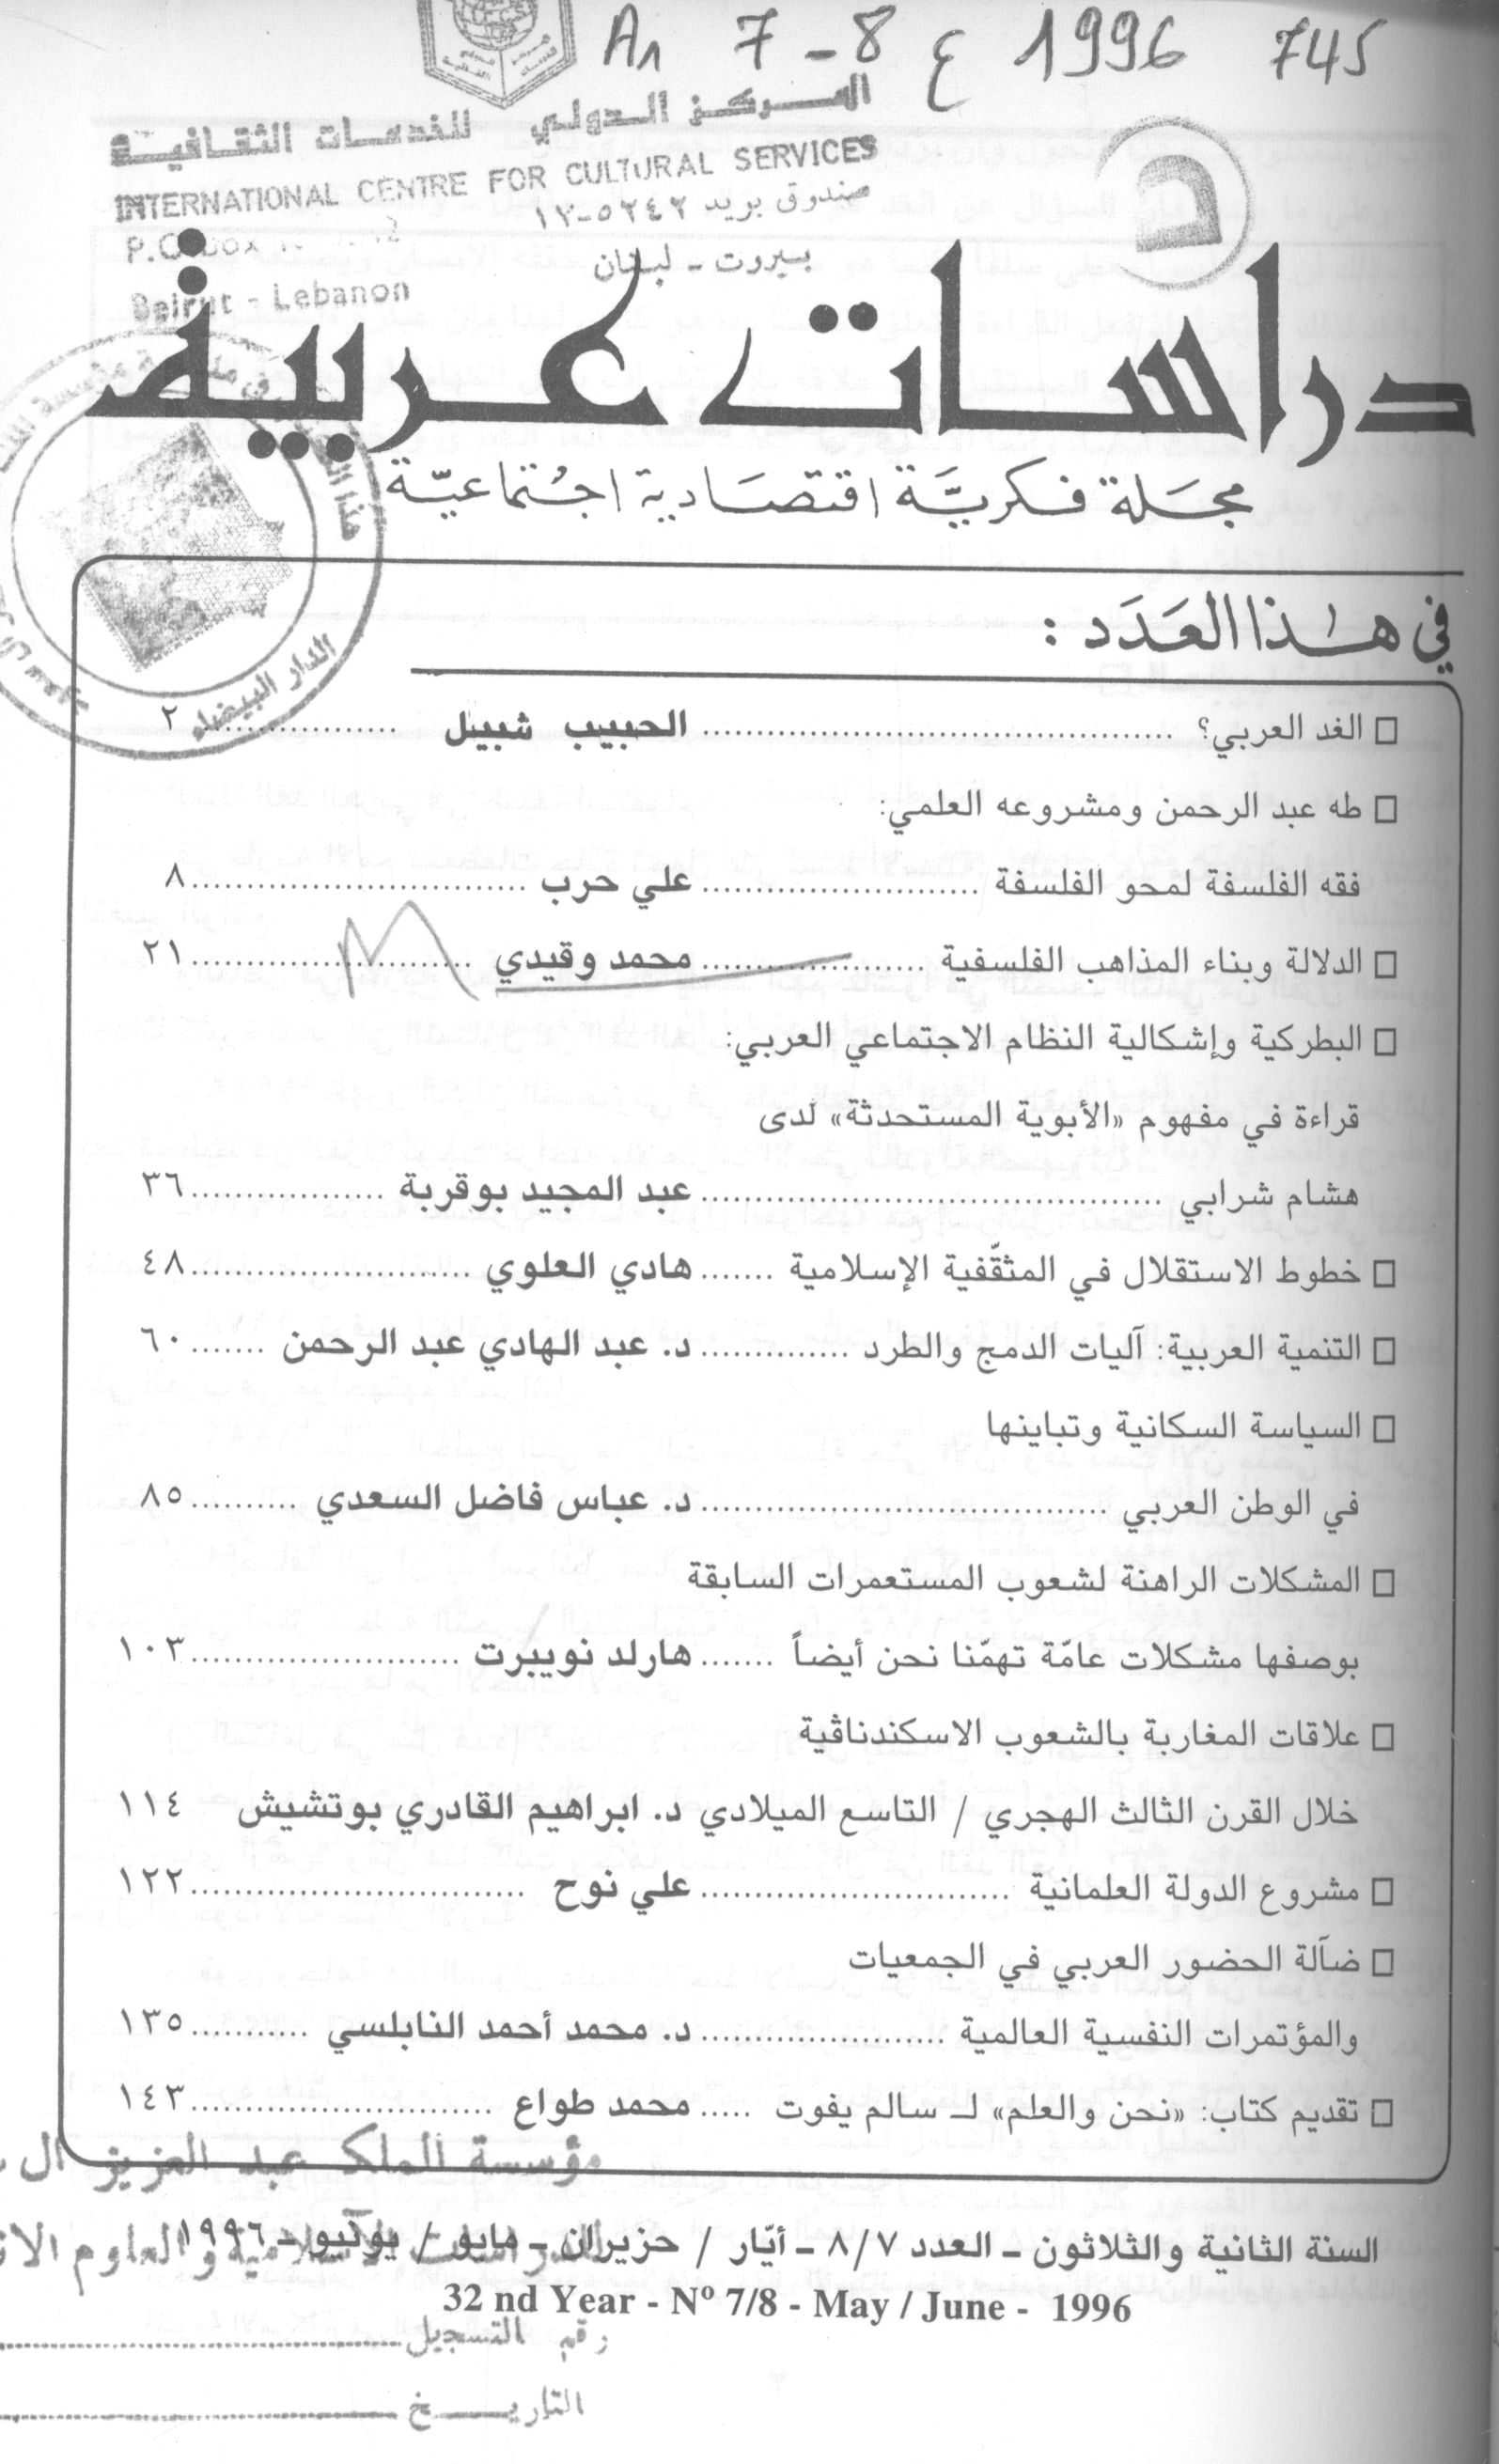 A1 7-8 ع 1996 745
المركز الدولي للخدمات الثقافية
INTERNATIONAL CENTRE FOR CULTURAL SERVICES
صندوق بريد ٥٢٤٢-١٧
P.O. Box
بيروت - لبنان
Beirut - Lebanon
دراسات عربية
مجلة فكرية اقتصادية اجتماعية
في هذا العدد :
□ الغد العربي؟ .......... الحبيب شبيل .......... ٢
□ طه عبد الرحمن ومشروعه العلمي:
فقه الفلسفة لمحو الفلسفة .......... علي حرب .......... ٨
□ الدلالة وبناء المذاهب الفلسفية .......... محمد وقيدي .......... ٢١
□ البطركية وإشكالية النظام الاجتماعي العربي:
قراءة في مفهوم «الأبوية المستحدثة» لدى
هشام شرابي .......... عبد المجيد بوقربة .......... ٣٦
□ خطوط الاستقلال في المثقّفية الإسلامية ....... هادي العلوي .......... ٤٨
□ التنمية العربية: آليات الدمج والطرد .......... د. عبد الهادي عبد الرحمن ....... ٦٠
□ السياسة السكانية وتباينها
في الوطن العربي .......... د. عباس فاضل السعدي .......... ٨٥
□ المشكلات الراهنة لشعوب المستعمرات السابقة
بوصفها مشكلات عامّة تهمّنا نحن أيضاً ....... هارلد نويبرت .......... ١٠٣
□ علاقات المغاربة بالشعوب الاسكندناڤية
خلال القرن الثالث الهجري / التاسع الميلادي د. ابراهيم القادري بوتشيش ١١٤
□ مشروع الدولة العلمانية .......... علي نوح .......... ١٢٢
□ ضآلة الحضور العربي في الجمعيات
والمؤتمرات النفسية العالمية .......... د. محمد أحمد النابلسي .......... ١٣٥
□ تقديم كتاب: «نحن والعلم» لـ سالم يفوت ..... محمد طواع .......... ١٤٣
الدار البيضاء
مؤسسة الملك عبد العزيز ال
للدراسات الاسلامية والعلوم
السنة الثانية والثلاثون - العدد ٨/٧ - أيّار / حزيران - مايو / يونيو - ١٩٩٦
32 nd Year - Nº 7/8 - May / June - 1996
رقم التسجيل ..........
التاريخ ..........